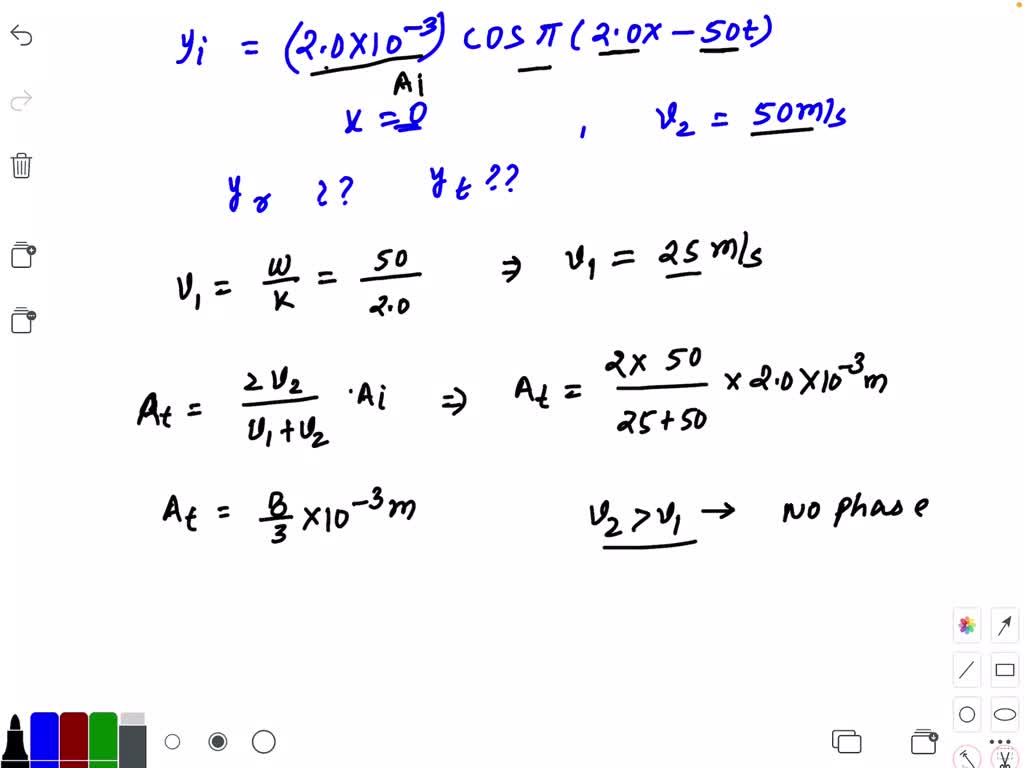 yi = (2.0×10⁻³) cos π(2.0x − 50t)
Ai
x = 0 , v₂ = 50m/s
yr ?? yt ??
v₁ = w/k = 50/2.0 ⇒ v₁ = 25 m/s
At = 2v₂/(v₁+v₂) · Ai ⇒ At = (2× 50)/(25+50) × 2.0×10⁻³m
At = 8/3 ×10⁻³m v₂ > v₁ → No phase